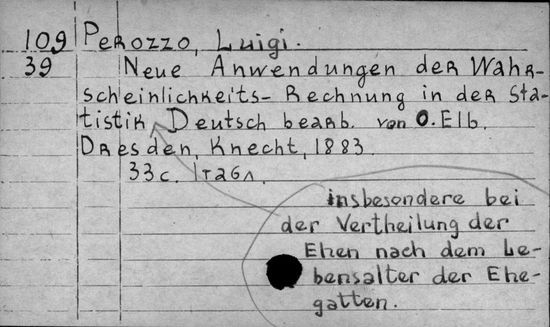 109 Perozzo, Luigi.
39 Neue Anwendungen der Wahr-
scheinlichkeits-Rechnung in der Sta-
tistik, Deutsch bearb. von O. Elb.
Dresden, Knecht, 1883.
33 c.
insbesondere bei
der Vertheilung der
Ehen nach dem Le-
bensalter der Ehe-
gatten.